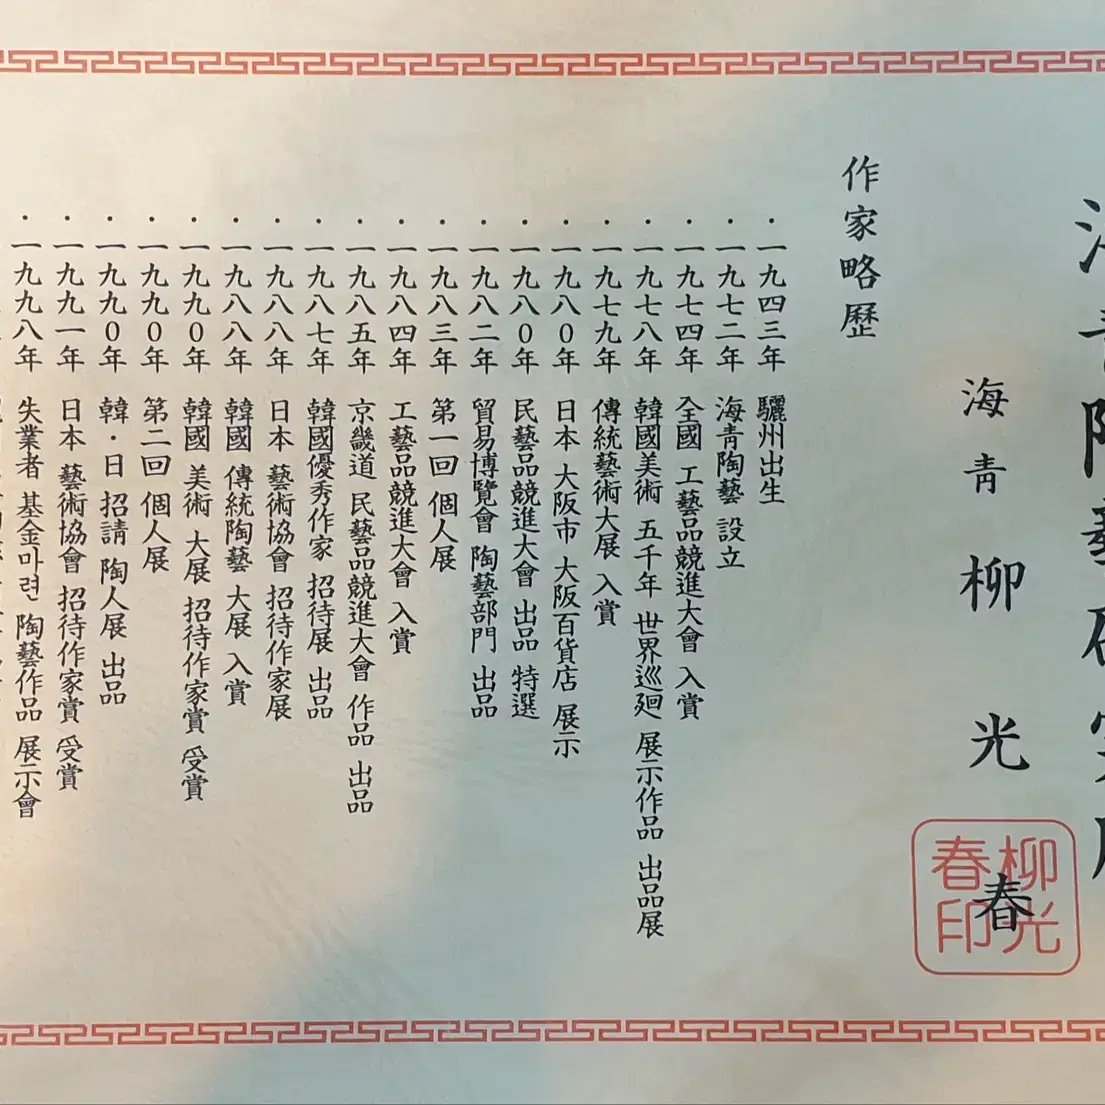 海青 柳光春
柳光
春印
作家略歷
· 一九四三年 驪州出生
· 一九七二年 海青陶藝 設立
· 一九七四年 全國 工藝品競進大會 入賞
· 一九七八年 韓國美術 五千年 世界巡廻 展示作品 出品展
· 一九七九年 傳統藝術大展 入賞
· 一九八0年 日本 大阪市 大阪百貨店 展示
· 一九八0年 民藝品競進大會 出品 特選
· 一九八二年 貿易博覽會 陶藝部門 出品
· 一九八三年 第一回 個人展
· 一九八四年 工藝品競進大會 入賞
· 一九八五年 京畿道 民藝品競進大會 作品 出品
· 一九八七年 韓國優秀作家 招待展 出品
· 一九八八年 日本 藝術協會 招待作家展
· 一九八八年 韓國 傳統陶藝 大展 入賞
· 一九九0年 韓國 美術 大展 招待作家賞 受賞
· 一九九0年 第二回 個人展
· 一九九0年 韓·日 招請 陶人展 出品
· 一九九一年 日本 藝術協會 招待作家賞 受賞
· 一九九八年 失業者 基金마련 陶藝作品 展示會